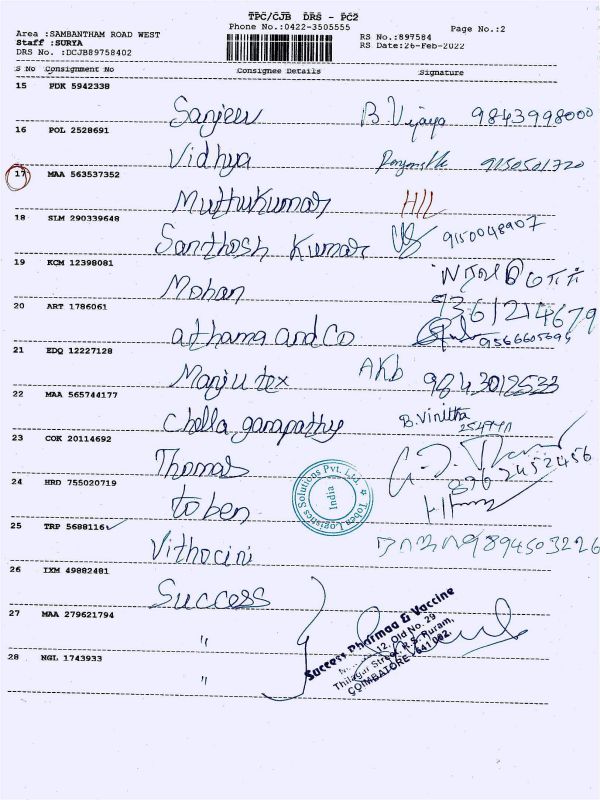 TPC/CJB DRS - PC2
Phone No.:0422-3505555
Page No.:2
Area :SAMBANTHAM ROAD WEST
Staff :SURYA
DRS No. :DCJB89758402
RS No.:897584
RS Date:26-Feb-2022
S No Consignment No Consignee Details Signature
15 PDK 5942338
Sanjeev B. Vijaya 9843998000
16 POL 2528691
Vidhya 9150501720
17 MAA 563537352
Muthukumar H/L
18 SLM 290339648
Santhosh Kumar 9150048907
19 KCM 12398081
Mohan
9361214679
20 ART 1786061
athama and Co 9566605695
21 EDQ 12227128
Manju tex AKb 9843012533
22 MAA 565744177
Chella ganapathy B. Vinitha
23 COK 20114692
Thomas 2452456
24 HRD 755020719
toben
Toben Logistics Solutions Pvt. Ltd.
India
25 TRP 5688116
Vithocini 9894503226
26 IXM 49882481
Success
27 MAA 279621794
"
28 NGL 1743933
"
Success Pharmaa & Vaccine
12, Old No. 29
Thilagar Street, R.S. Puram,
COIMBATORE - 641 002